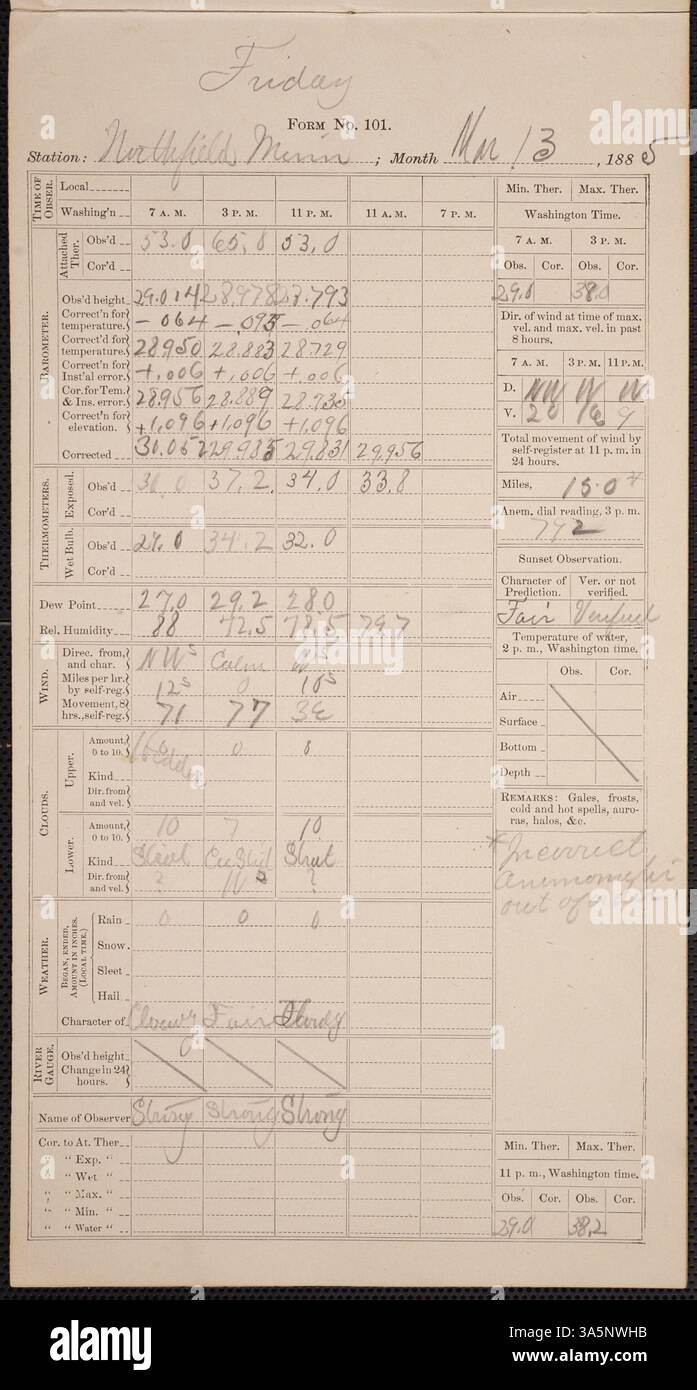 Friday
FORM No. 101.
Station: Northfield Minn ; Month Mar 13 , 1885
TIME OF OBSER.
Local
Washing'n 7 A. M. 3 P. M. 11 P. M. 11 A. M. 7 P. M.
BAROMETER.
Attached Ther.
Obs'd 53.0 65.0 53.0
Cor'd
Obs'd height 29.014 28.978 28.793
Correct'n for temperature. -064 -.095 -.064
Correct'd for temperature. 28950 28.883 28.729
Correct'n for Inst'al error. +.006 +.006 +.006
Cor. for Tem. & Ins. error. 28.956 28.889 28.735
Correct'n for elevation. +1,096 +1,096 +1,096
Corrected 30.052 29.985 29.831 29.956
THERMOMETERS.
Exposed.
Obs'd 37.2 34.0 33.8
Cor'd
Wet Bulb.
Obs'd 34.2 32.0
Cor'd
Dew Point 27.0 29.2 28.0
Rel. Humidity 88 72.5 78.5 79.7
WIND.
Direc. from, and char. NW s Calm W s
Miles per hr. by self-reg. 12 s 0 10 s
Movement, 8 hrs., self-reg. 71 77
CLOUDS.
Upper.
Amount, 0 to 10. 0
Kind
Dir. from and vel.
Lower.
Amount, 0 to 10. 10 7 10
Kind
Dir. from and vel. ? ?
WEATHER.
BEGAN, ENDED, AMOUNT IN INCHES. (LOCAL TIME.)
Rain 0 0 0
Snow.
Sleet
Hail
Character of Fair Cloudy
RIVER GAUGE.
Obs'd height
Change in 24 hours.
Name of Observer Strong Strong Strong
Cor. to At. Ther
" " Exp. "
" " Wet "
" " Max. "
" " Min. "
" " Water "
Min. Ther. Max. Ther.
Washington Time.
7 A. M. 3 P. M.
Obs. Cor. Obs. Cor.
29.0 38.0
Dir. of wind at time of max. vel. and max. vel. in past 8 hours.
7 A. M. 3 P. M. 11 P. M.
D. NW W W
V. 20 16 9
Total movement of wind by self-register at 11 p. m. in 24 hours.
Miles, 15.0*
Anem. dial reading, 3 p. m.
792
Sunset Observation.
Character of Prediction. Ver. or not verified.
Fair Verified
Temperature of water, 2 p. m., Washington time.
Obs. Cor.
Air
Surface
Bottom
Depth
REMARKS: Gales, frosts, cold and hot spells, auroras, halos, &c.
* Incorrect
out of
Min. Ther. Max. Ther.
11 p. m., Washington time.
Obs. Cor. Obs. Cor.
29.0 38.2
alamy
Image ID: 3A5NWHB
www.alamy.com